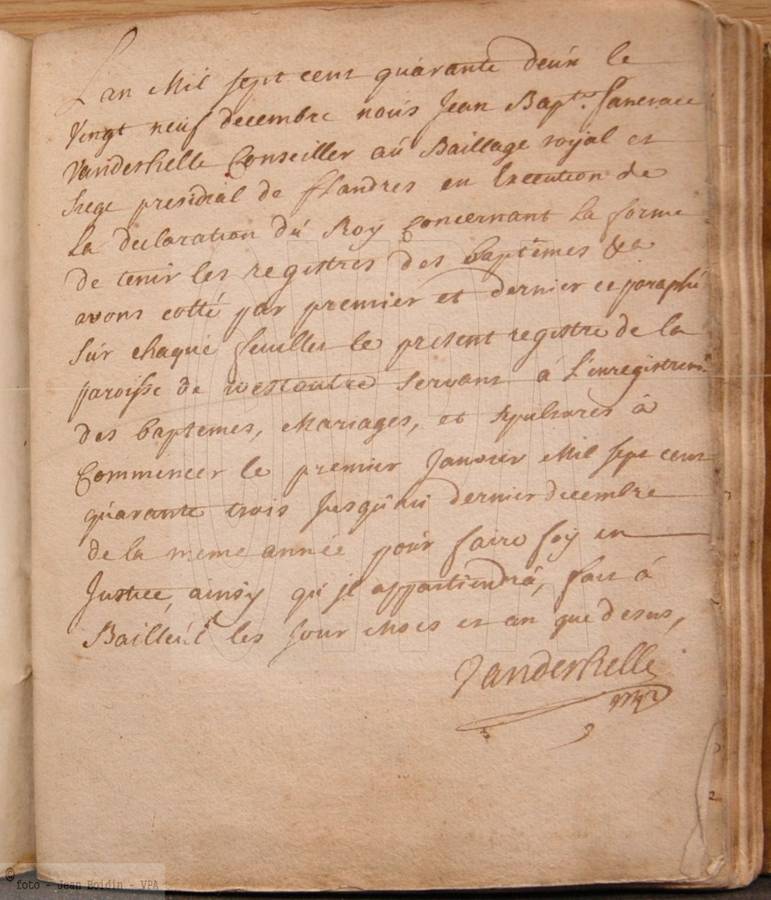 L'an Mil sept cent quarante deux le
Vingt neuf decembre nous Jean Bapt.e
Vanderhelle Conseiller au Baillage royal et
Siege presidial de flandres en Execution de
La declaration du Roy Concernant La forme
de tenir les registres des baptêmes &a
avons cotté par premier et dernier et paraphé
sur chaque feuillet le present registre de la
paroisse de westoutre servant á L'enregistremt
des baptemes, Mariages, et sepultures à
Commencer le premier Janvier Mil sept cent
quarante trois Jusqu'au dernier decembre
de la meme année pour faire foy en
Justice, ainsy qu'jl appartiendrá, fait á
Bailleul les Jour Mois et an que desus,
Vanderhelle
1742
© foto - Jean Boidin - VPA